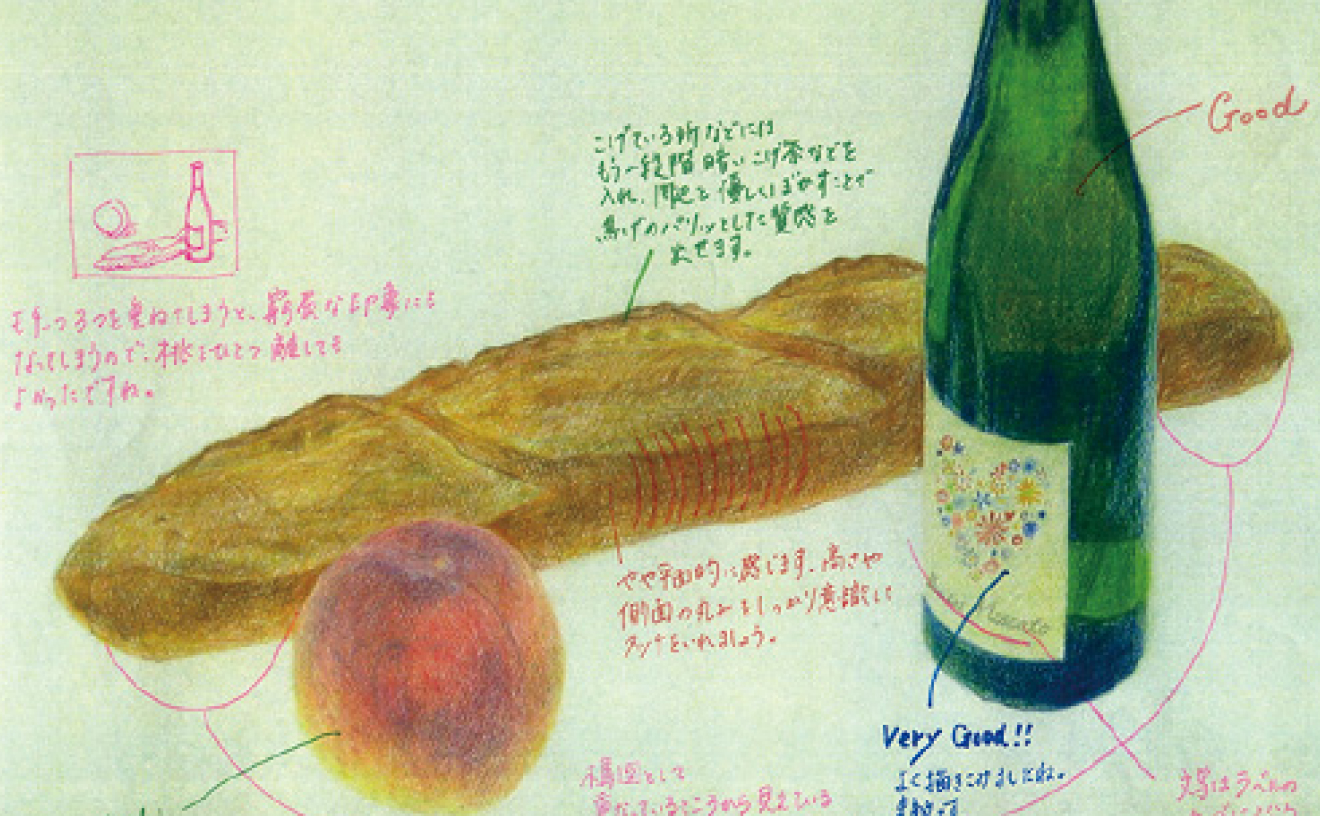 Good
こげている所などには
もう一段階暗いこげ茶などを
入れ、周辺と優しくぼかすことで
焦げのパリッとした質感を
出せます。
モチーフ3つを重ねてしまうと、窮屈な印象にも
なってしまうので、桃をひとつ離しても
よかったですね。
やや平面的に感じます。高さや
側面の丸みをしっかり意識して
タッチをいれましょう。
Moscato
Very Good!!
よく描きこみましたね。
構図として
重なっているところから見えている
文字はラベルの